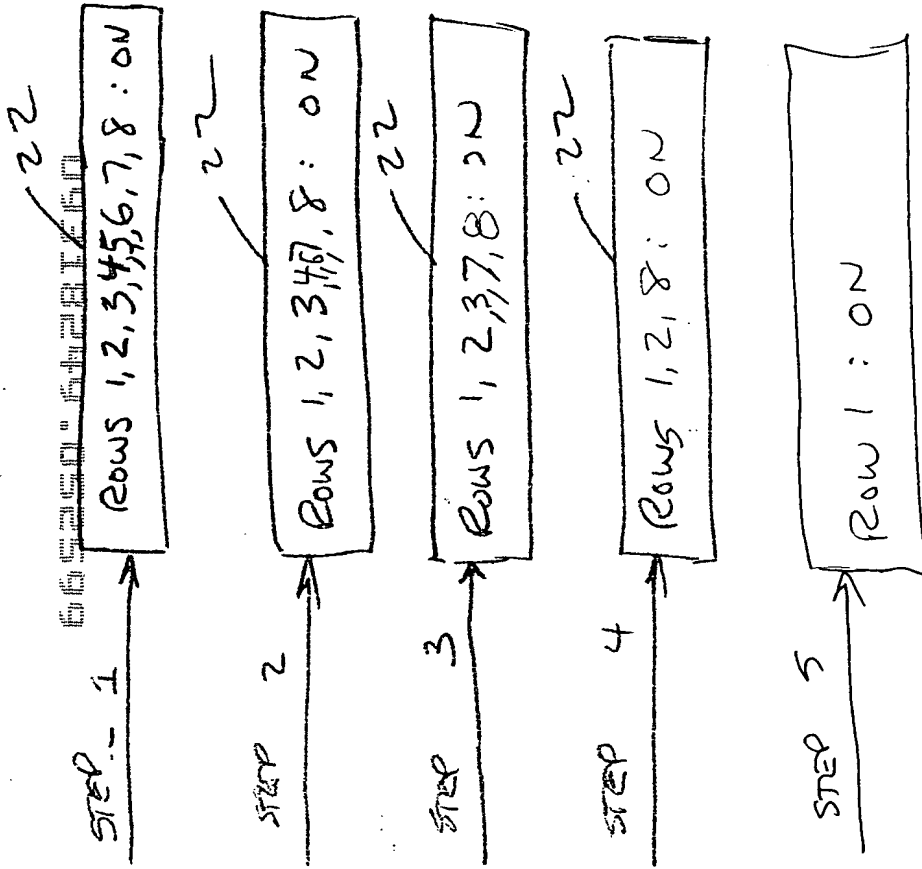 09318249.052599
STEP 1
Rows 1, 2, 3, 4, 5, 6, 7, 8 : ON
22
STEP 2
Rows 1, 2, 3, 4, 6, 7, 8 : ON
22
STEP 3
Rows 1, 2, 3, 7, 8 : ON
22
STEP 4
Rows 1, 2, 8 : ON
22
STEP 5
Row 1 : ON